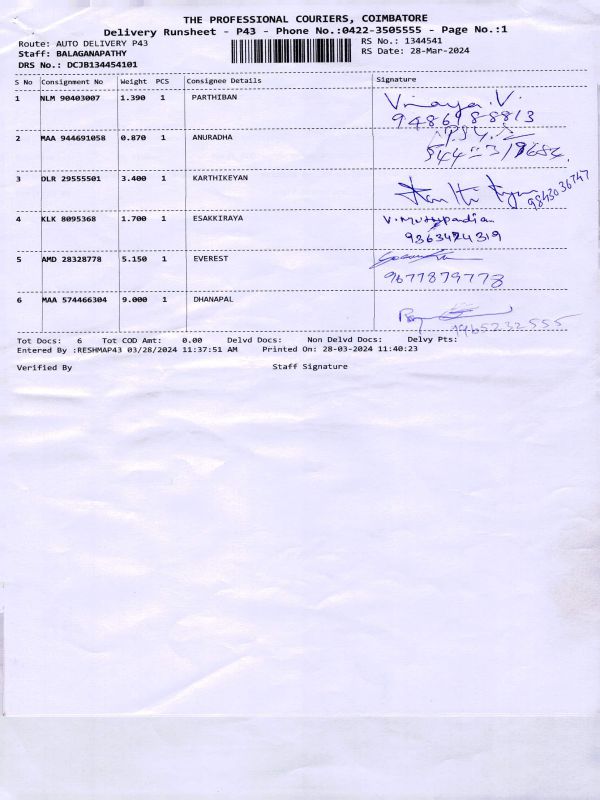 THE PROFESSIONAL COURIERS, COIMBATORE
Delivery Runsheet - P43 - Phone No.:0422-3505555 - Page No.:1
Route: AUTO DELIVERY P43
RS No.: 1344541
Staff: BALAGANAPATHY
RS Date: 28-Mar-2024
DRS No.: DCJB134454101
S No Consignment No Weight PCS Consignee Details Signature
1 NLM 90403007 1.390 1 PARTHIBAN Vinaya.V.
2 MAA 944691058 0.870 1 ANURADHA
3 DLR 29555501 3.400 1 KARTHIKEYAN 9843036747
4 KLK 8095368 1.700 1 ESAKKIRAYA V.Muthupandian
9363424319
5 AMD 28328778 5.150 1 EVEREST
9677879773
6 MAA 574466304 9.000 1 DHANAPAL
7965232555
Tot Docs: 6 Tot COD Amt: 0.00 Delvd Docs: Non Delvd Docs: Delvy Pts:
Entered By :RESHMAP43 03/28/2024 11:37:51 AM Printed On: 28-03-2024 11:40:23
Verified By Staff Signature